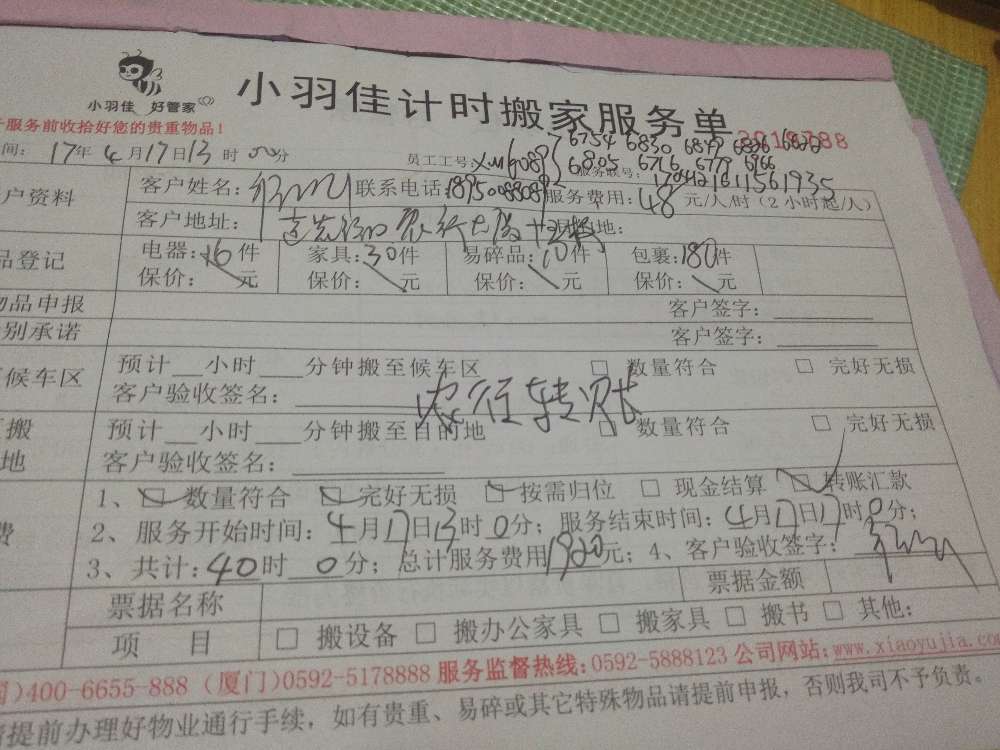 小羽佳 好管家
小羽佳计时搬家服务单
服务前收拾好您的贵重物品!
间: 17年4月17日13时00分 员工工号:
6754 6830
6805 6716 6779 6966
户资料 客户姓名: 联系电话: 服务费用: 48 元/人/时(2小时起/人)
客户地址: 地:
品登记 电器: 16件 家具: 30件 易碎品: 10件 包裹: 180件
保价: 元 保价: 元 保价: 元 保价: 元
物品申报 客户签字:
别承诺 客户签字:
候车区 预计__小时___分钟搬至候车区 □ 数量符合 □ 完好无损
客户验收签名:
农行转账
搬 预计__小时___分钟搬至目的地 □ 数量符合 □ 完好无损
地 客户验收签名:
1、☑ 数量符合 ☑ 完好无损 ☑ 按需归位 □ 现金结算 ☑ 转账汇款
费 2、服务开始时间: 4月17日13时0分; 服务结束时间: 4月17日17时0分;
3、共计: 40时0分; 总计服务费用1920元; 4、客户验收签字:
票据名称 票据金额
项 目 □ 搬设备 □ 搬办公家具 □ 搬家具 □ 搬书 □ 其他:
)400-6655-888 (厦门)0592-5178888 服务监督热线:0592-5888123 公司网站:www.xiaoyujia.co
提前办理好物业通行手续,如有贵重、易碎或其它特殊物品请提前申报,否则我司不予负责。